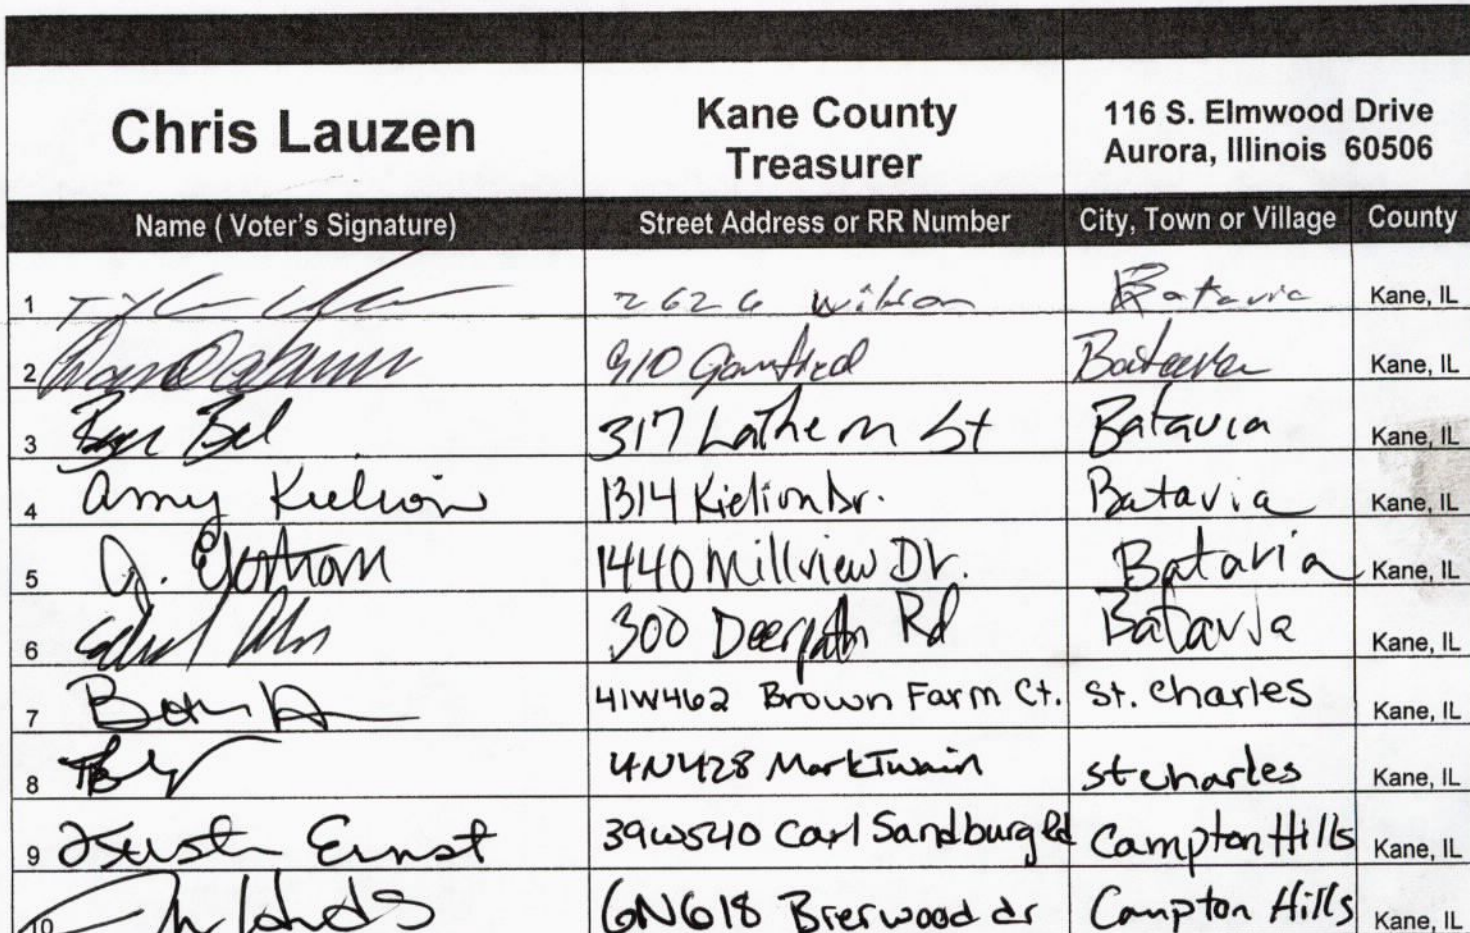 Chris Lauzen
Kane County
Treasurer
116 S. Elmwood Drive
Aurora, Illinois 60506
Name ( Voter's Signature) Street Address or RR Number City, Town or Village County
1 2626 Wilson Batavia Kane, IL
2 910 Batavia Kane, IL
3 317 Lathem St Batavia Kane, IL
4 Amy 1314 Kielion Dr. Batavia Kane, IL
5 J. 1440 Millview Dr. Batavia Kane, IL
6 300 Deerpath Rd Batavia Kane, IL
7 41W462 Brown Farm Ct. St. Charles Kane, IL
8 4N428 Mark Twain St Charles Kane, IL
9 Ernst 39W540 Carl Sandburg Rd Campton Hills Kane, IL
10 6N618 Brerwood dr Campton Hills Kane, IL